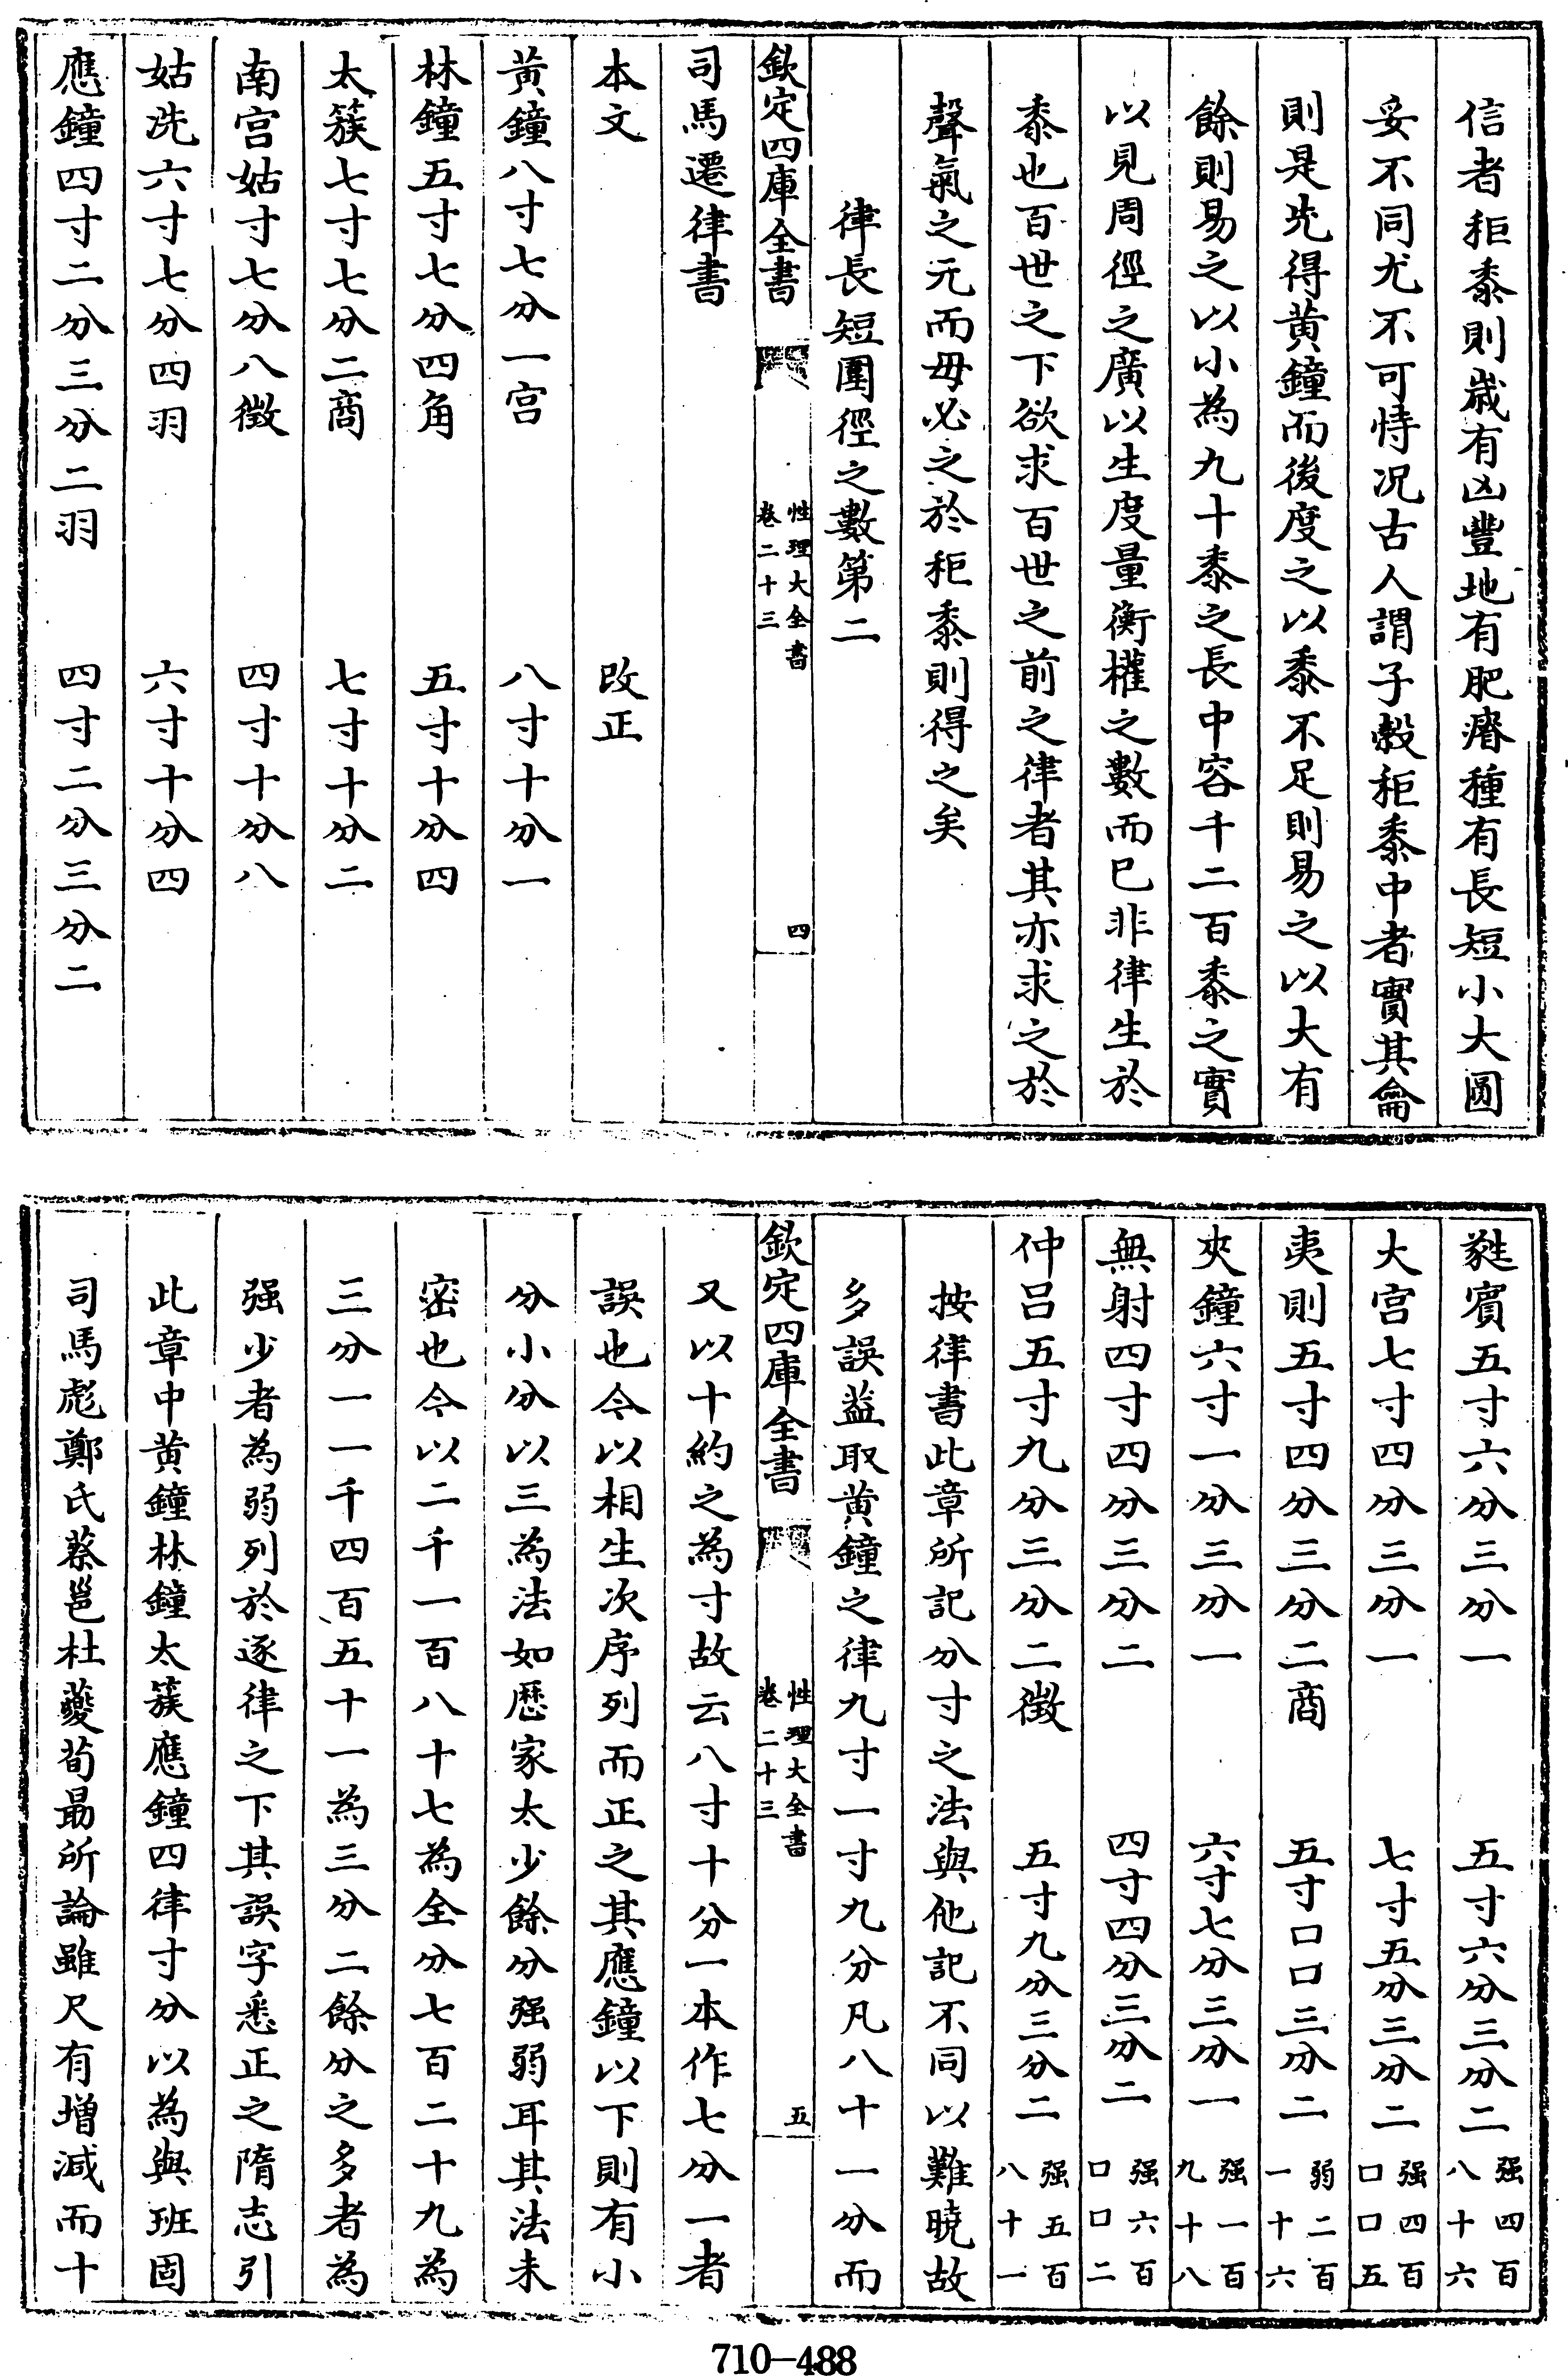 信者秬黍則歳有凶豐地有肥瘠種有長短小大圓
妥不同尤不可恃况古人謂子穀秬黍中者實其龠
則是先得黄鐘而後度之以黍不足則易之以大有
餘則易之以小為九十黍之長中容千二百黍之實
以見周徑之廣以生度量衡權之數而已非律生於
黍也百世之下欲求百世之前之律者其亦求之於
聲氣之元而毋必之於秬黍則得之矣
律長短圍徑之數第二
欽定四庫全書
性理大全書
卷二十三
四
司馬遷律書
本文 改正
黄鐘八寸七分一宫 八寸十分一
林鐘五寸七分四角 五寸十分四
太簇七寸七分二商 七寸十分二
南宫姑寸七分八徵 四寸十分八
姑洗六寸七分四羽 六寸十分四
應鐘四寸二分三分二羽 四寸二分三分二
蕤賔五寸六分三分一 五寸六分三分二强四百八十六
大宫七寸四分三分一 七寸五分三分二强四百口口五
夷則五寸四分三分二商 五寸口口三分二弱二百一十六
夾鐘六寸一分三分一 六寸七分三分一强一百九十八
無射四寸四分三分二 四寸四分三分二强六百口口二
仲吕五寸九分三分二徵 五寸九分三分二强五百八十一
按律書此章所記分寸之法與他記不同以難曉故
多誤葢取黄鐘之律九寸一寸九分凡八十一分而
欽定四庫全書
性理大全書
卷二十三
五
又以十約之為寸故云八寸十分一本作七分一者
誤也今以相生次序列而正之其應鐘以下則有小
分小分以三為法如歴家太少餘分强弱耳其法未
密也今以二千一百八十七為全分七百二十九為
三分一一千四百五十一為三分二餘分之多者為
强少者為弱列於逐律之下其誤字悉正之隋志引
此章中黄鐘林鐘太簇應鐘四律寸分以為與班固
司馬彪鄭氏蔡邕杜夔荀勗所論雖尺有增减而十
710-488